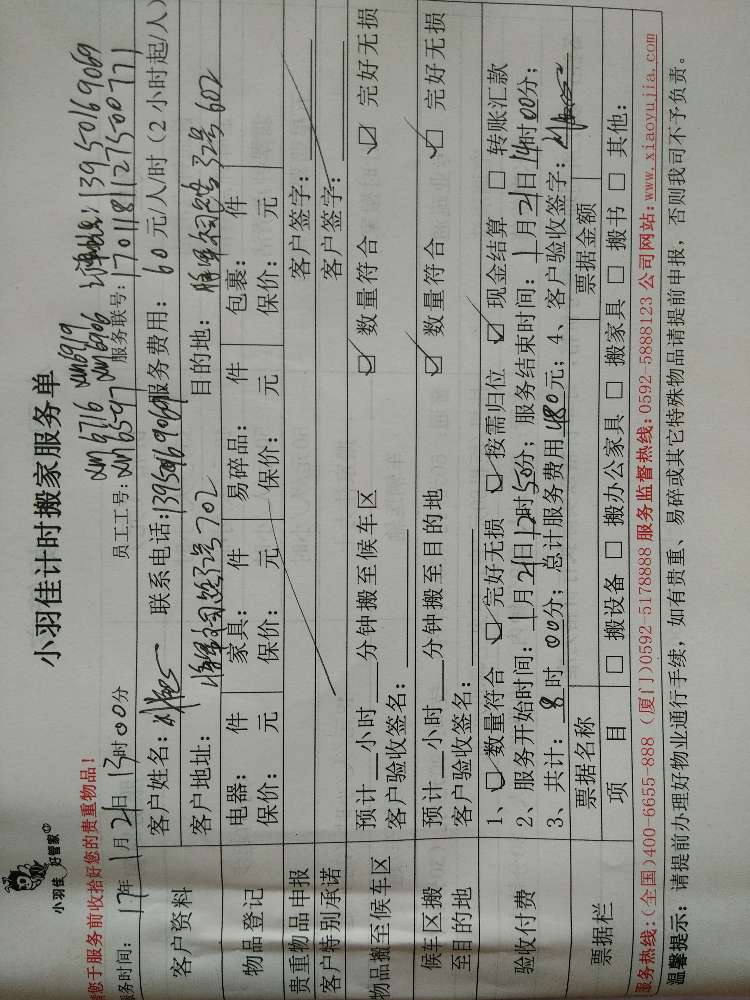 小羽佳
好管家
小羽佳计时搬家服务单
您于服务前收拾好您的贵重物品!
xm6716 xm6919
员工工号: xm6597 xm6906
订单电话: 13950169069
服务时间: 17年1月21日13时00分
服务联号: 1701181127500771
客户资料
客户姓名: 联系电话: 13950169069 服务费用: 60元/人/时(2小时起/人)
客户地址: 号702 目的地: 32号602
物品登记
电器: 件 家具: 件 易碎品: 件 包裹: 件
保价: 元 保价: 元 保价: 元 保价: 元
贵重物品申报 客户签字:
客户特别承诺 客户签字:
物品搬至候车区
预计 小时 分钟搬至候车区 ☑ 数量符合 ☑ 完好无损
客户验收签名:
候车区搬至目的地
预计 小时 分钟搬至目的地 ☑ 数量符合 ☑ 完好无损
客户验收签名:
验收付费
1、☑ 数量符合 ☑ 完好无损 ☑ 按需归位 ☑ 现金结算 □ 转账汇款
2、服务开始时间: 1月21日12时50分; 服务结束时间: 1月21日14时00分;
3、共计: 8时00分; 总计服务费用480元; 4、客户验收签字:
票据栏
票据名称 票据金额
项目 □ 搬设备 □ 搬办公家具 □ 搬家具 □ 搬书 □ 其他:
服务热线:(全国)400-6655-888 (厦门)0592-5178888 服务监督热线: 0592-5888123 公司网站: www.xiaoyujia.com
温馨提示: 请提前办理好物业通行手续, 如有贵重、易碎或其它特殊物品请提前申报, 否则我司不予负责。